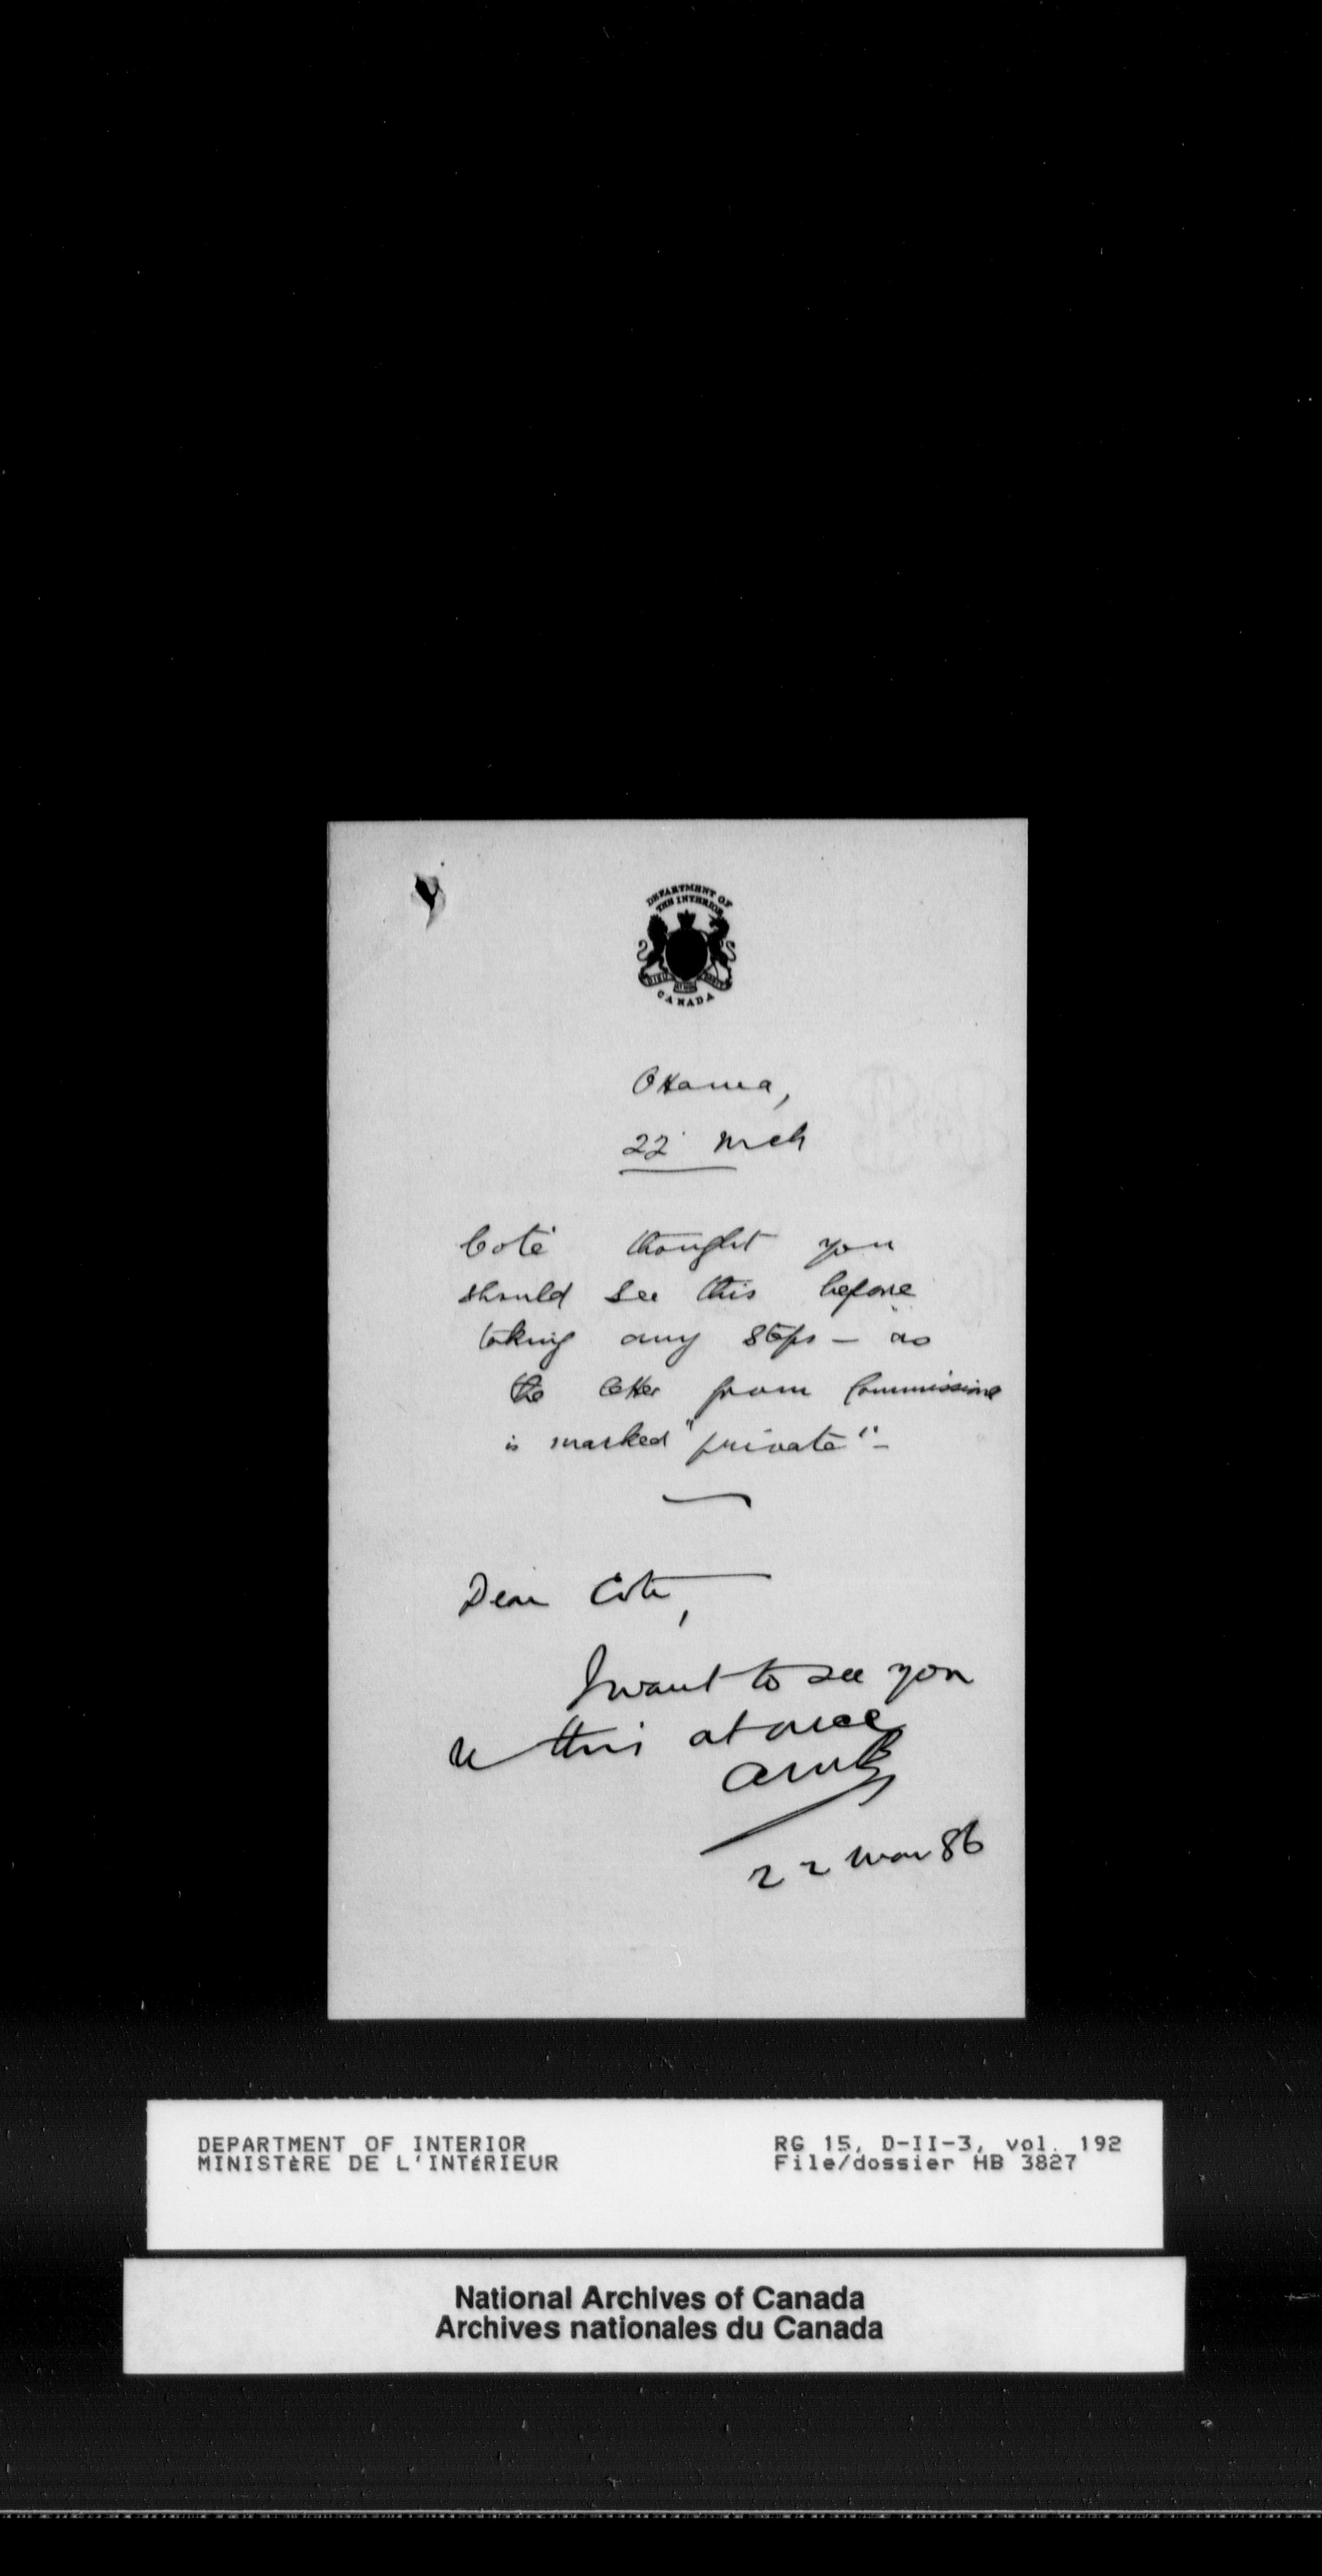 DEPARTMENT OF
THE INTERIOR
CANADA
Ottawa,
22 Mch
Coté thought you
should see this before
taking any steps – as
the letter from Commissioner
is marked "private" –
Dear Cote,
I want to see you
re this at once
AMB
22 Mar 86
DEPARTMENT OF INTERIOR
MINISTÈRE DE L'INTÉRIEUR
RG 15, D-II-3, vol. 192
File/dossier HB 3827
National Archives of Canada
Archives nationales du Canada